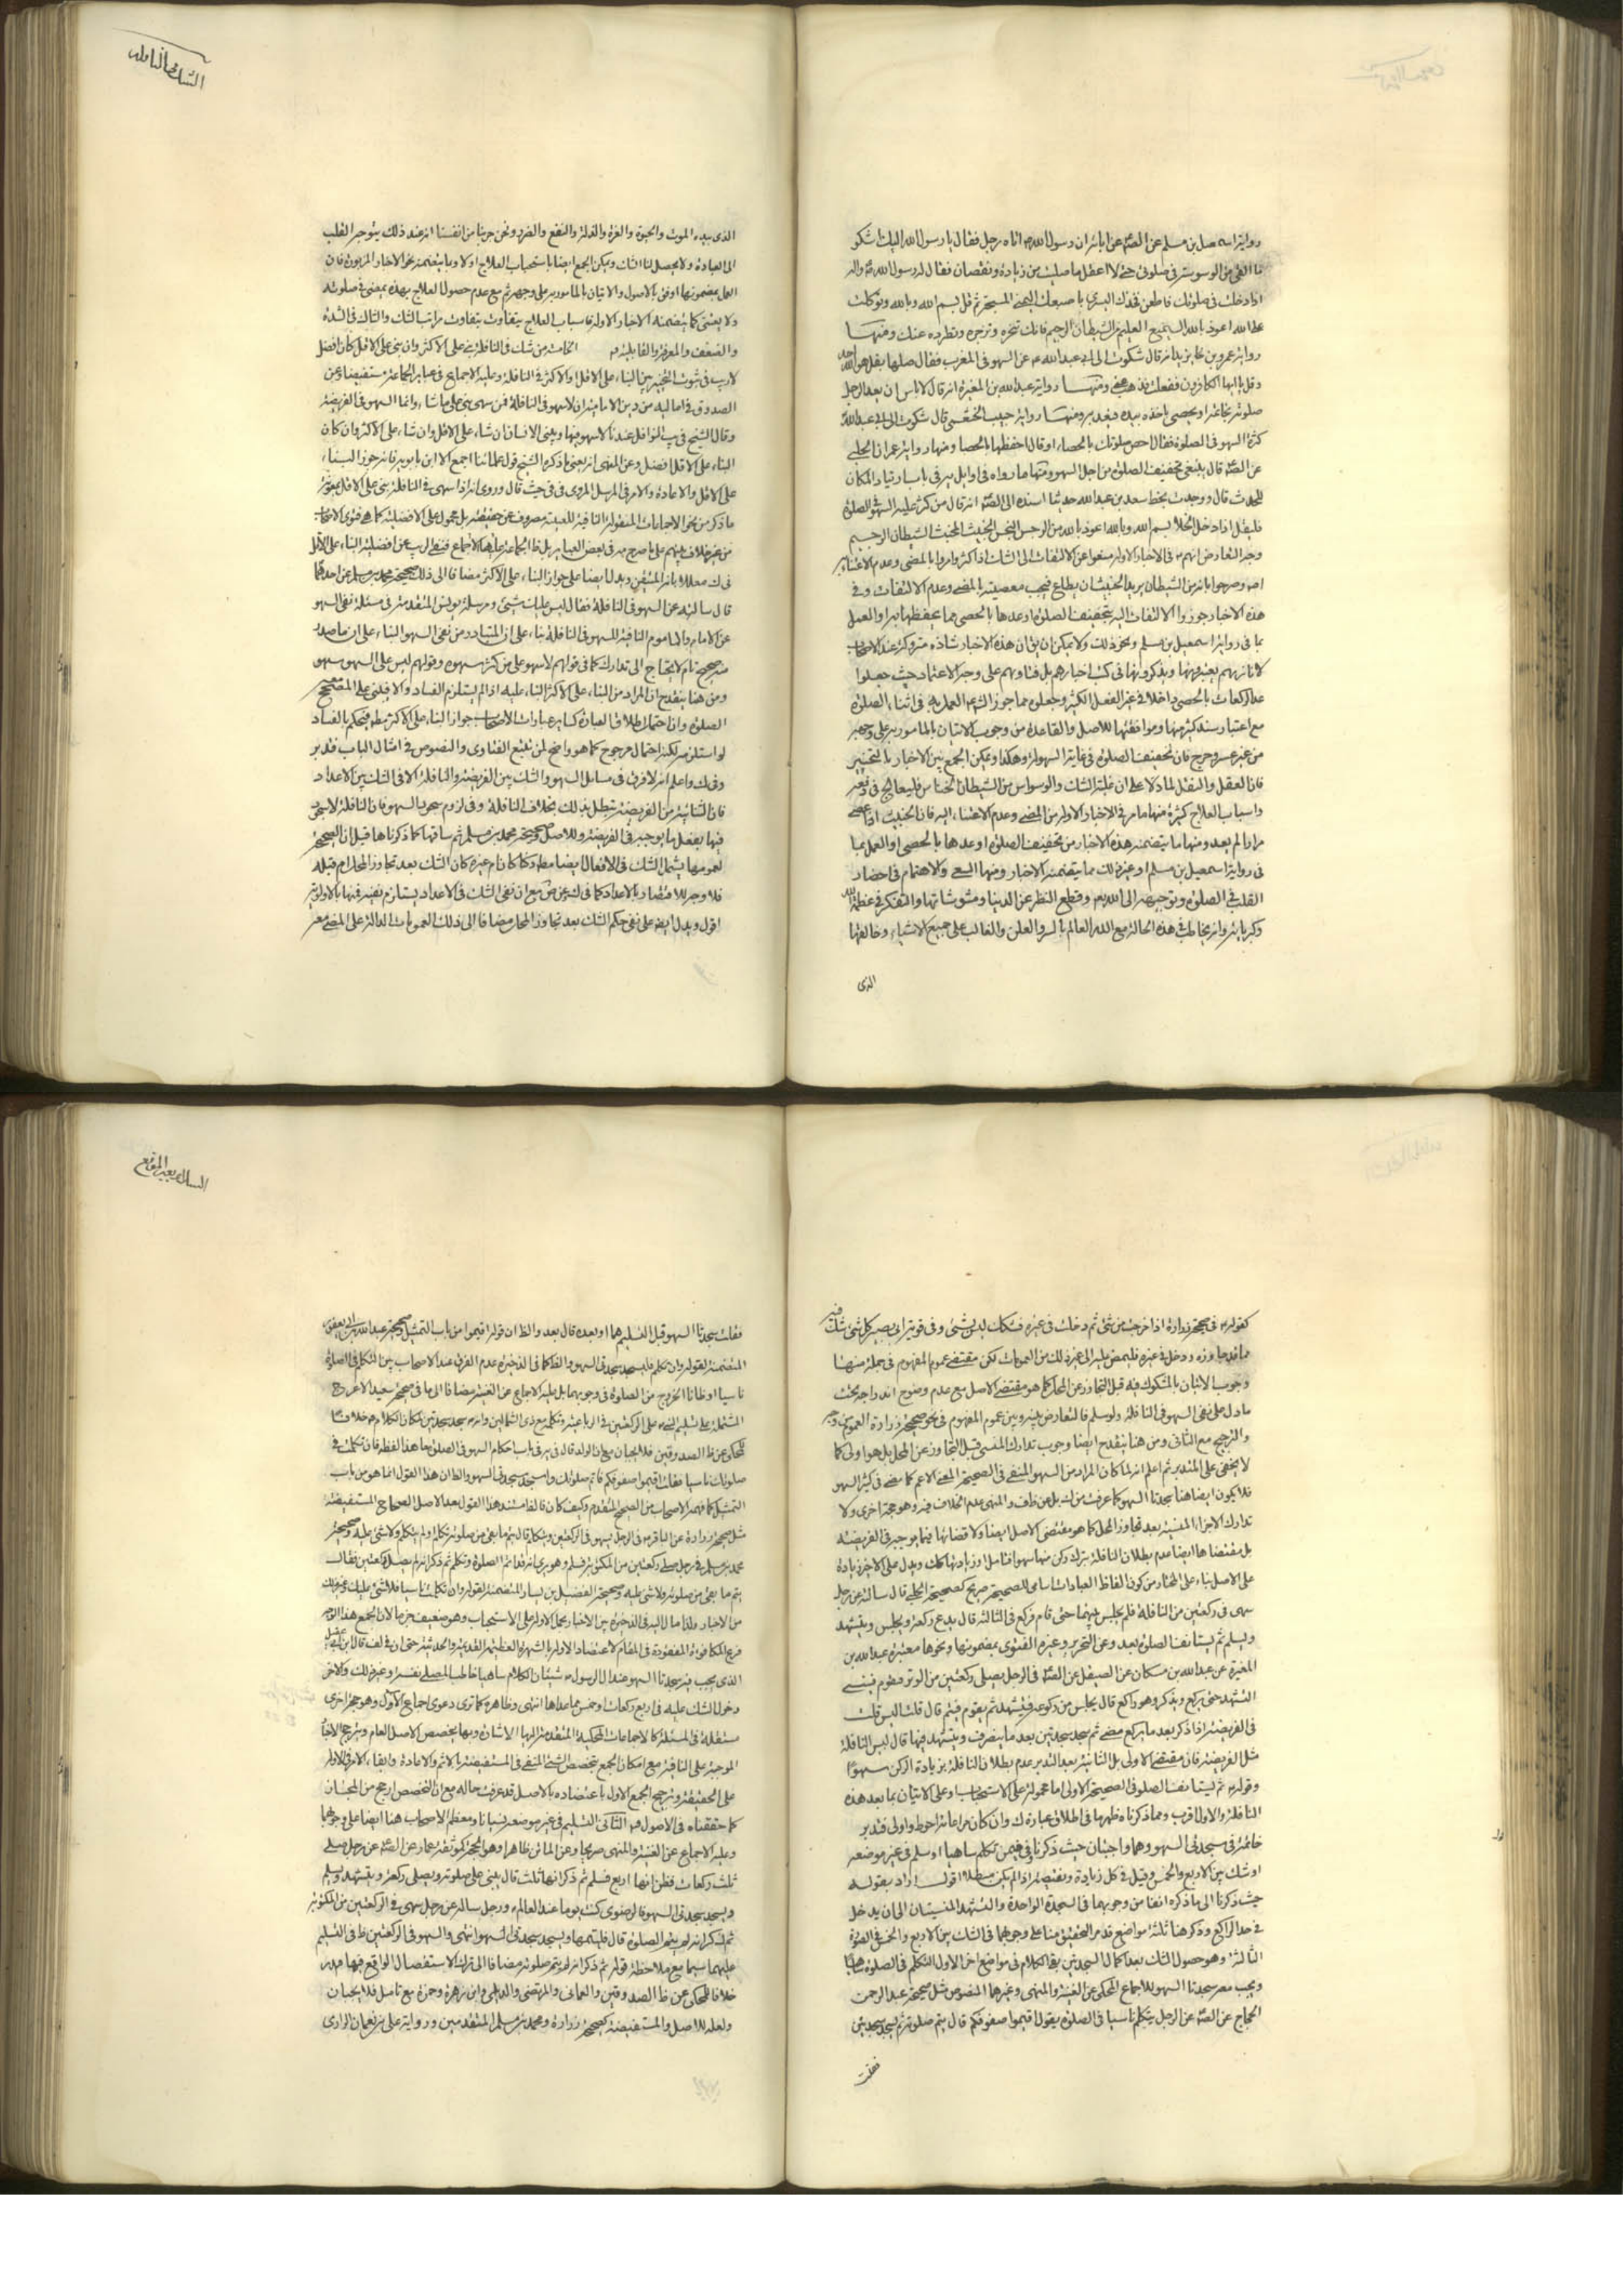 رواية اسمعيل بن مسلم عن الصّه عن ابائه ان رسول الله ص اتاه رجل فقال يا رسول الله اليك اشكو
ما القى من الوسوسة في صلوتي حتى لا اعقل ما صليت من زيادة ونقصان فقال له رسول الله ص
اذا دخلت في صلوتك فاطعن فخذك اليسرى باصبعك اليمنى المسبحة ثم قل بسم الله وبالله وتوكلت
على الله اعوذ بالله السميع العليم من الشيطان الرجيم فانك تنحره وتزجره وتطرده عنك ومنها
رواية عمرو بن قال شكوت الى ابي عبد الله ع عن السهو في المغرب فقال صلها بقل هو الله احد
وقل يا ايها الكافرون ففعلت فذهب عني ومنها رواية عبد الله بن المغيرة انه قال لا باس ان يعد الرجل
صلوته بخاتمه او بحصى ياخذه بيده فيعد به ومنها رواية حبيب الخثعمي قال شكوت الى ابي عبد الله ع
كثرة السهو في الصلوة فقال احص صلوتك بالحصاء او قال احفظها بالحصا ومنها رواية عمران الحلبي
عن الصّه قال ينبغي تخفيف الصلوة من اجل السهو ومنها ما رواه في اوايل ير في باب ارتياد المكان
للحدث قال ووجدت بخط سعد بن عبد الله حديثا اسنده الى الصّه انه قال من كثر عليه السهو في الصلوة
فليقل اذا دخل الخلا بسم الله وبالله اعوذ بالله من الرجس النجس الخبيث المخبث الشيطان الرجيم
وجه التعارض انهم ع في الاخبار الاوله منعوا عن الالتفات الى الشك اذا كثر وامروا بالمضي وعدم الاعتناء به
وصرحوا بانه من الشيطان يريد الخبيث ان يطاع فيجب معصيته بالمضي وعدم الالتفات وفي
هذه الاخبار جوزوا الالتفات اليه بتخفيف الصلوة او عدها بالحصى مما يحفظها به او العمل
بما في رواية اسمعيل بن مسلم ونحو ذلك ولا يمكن ان يقال ان هذه الاخبار شاذه متروكة عند الاصحاب
لانا نريهم يعتبرونها ويذكرونها في كتب اخبارهم بل فتاويهم على وجه الاعتماد حيث جعلوا
عد الركعات بالحصى داخلا في غير الفعل الكثير وجعلوه مما جوز الشرع العمل به في اثناء الصلوة
مع اعتبار سند كثير منها وموافقتها للاصل والقاعدة من وجوب الاتيان بالمامور به على وجهه
من غير عسر وحرج فان تخفيف الصلوة في غاية السهولة وهكذا ويمكن الجمع بين الاخبار بالتخيير
فان العقل والنقل لما دلا على ان غلبة الشك والوسواس من الشيطان الخناس فليعالج في دفعه
واسباب العلاج كثيرة منها ما مر في الاخبار الاوله من المضي وعدم الاعتناء اليه فان الخبيث اذا عصي
مرارا لم يعد ومنها ما يتضمنه هذه الاخبار من تخفيف الصلوة او عدها بالحصى او العمل بما
في رواية اسمعيل بن مسلم او غير ذلك مما يتضمنه الاخبار ومنها السعي والاهتمام في احضار
القلب في الصلوة وتوجيهه الى الله تع وقطع النظر عن الدنيا ومشوشاتها والتفكر في عظمة الله
وكبريائه وانه يخاطب في هذه الحالة مع الله العالم بالسر والعلن والغالب على جميع الاشياء وخالقها
الذي
الشك في النافلة
الذي بيده الموت والحيوة والعزة والذلة والنفع والضرر ونحن جربنا من انفسنا انه عند ذلك يتوجه القلب
الى العبادة ولا يحصل لنا الشك ويمكن الجمع ايضا باستحباب العلاج اولا وبما يتضمنه نحو الاخبار المزبورة فان
العمل بمضمونها اوفق بالاصول والاتيان بالمامور به على وجهه ثم مع عدم حصول العلاج بهذه يمضي في صلوته
ولا يعتني كما يتضمنه الاخبار الاوله فاسباب العلاج يتفاوت بتفاوت مراتب الشك والشاك في الشدة
والضعف والمعرفة والقابلية الخامسة من شك في النافلة بنى على الاكثر وان بنى على الاقل كان افضل
لا ريب في ثبوت التخيير بين البناء على الاقل او الاكثر في النافلة وعليه الاجماع في عباير الجماعة مستفيضا وعن
الصدوق في اماليه من دين الامامية ان لا سهو في النافلة فمن سهى بنى على ما شاء وانما السهو في الفريضة
وقال الشيخ في يب النوافل عندنا لا سهو فيها ويبني الانسان ان شاء على الاقل وان شاء على الاكثر وان كان
البناء على الاقل افضل وعن المنهى انه يعني ما ذكره الشيخ قول علمائنا اجمع الا ابن بابويه فانه جوز البناء
على الاقل والاعادة والامر في المرسل المروى في في حيث قال وروي انه اذا سهى في النافلة بنى على الاقل بمعونة
ما ذكر من نحو الاجماعات المنقولة النافية للعينية مصروف عن حقيقته بل محمول على الافضلية كما هي فتوى الاصحاب
قال سالته عن السهو في النافلة فقال ليس عليك شيء ومرسلة يونس المتقدمة في مسئلة نفي السهو
عن الامام والماموم النافية للسهو في النافلة بناء على ان المتبادر من نفي السهو البناء على ان ما صدر
منه صحيح تام لا يحتاج الى تدارك كما في قولهم لا سهو على من كثر سهوه وقولهم ليس على السهو سهو
ومن هنا ينقدح ان المراد من البناء على الاكثر البناء عليه اذا لم يستلزم الفساد والا فيبني على المصحح
الصلوة وان احتمل اطلاق العبارة كساير عبارات الاصحاب جواز البناء على الاكثر مطلقا فيحكم بالفساد
لو استلزمه لكنه احتمال مرجوح كما هو واضح لمن تتبع الفتاوى والنصوص في امثال الباب فتدبر
واعلم انه لا فرق في مسائل السهو والشك بين الفريضة والنافلة الا في الشك بين الاعداد
فان الثنائية من الفريضة تبطل بذلك بخلاف النافلة وفي لزوم سجود السهو فان النافلة لا سجود
فيها بفعل ما يوجبه في الفريضة وللاصل وصحيحة محمد بن مسلم ثم ساقها كما ذكرناها قبل ان الصحيحة
لعمومها يشمل الشك في الافعال ايضا مطلقا ركنا كان ام غيره كان الشك بعد تجاوز المحل ام قبله
فلا وجه للاقتصار بالاعداد كما في ك مع ان نفي الشك في الاعداد يستلزم نفيه فيها بالاولوية
اقول ويدل ايضا على نفي حكم الشك بعد تجاوز المحل مضافا الى ذلك العمومات الدالة على المضي معه
كقوله ع في صحيحة زرارة اذا خرجت من شيء ثم دخلت في غيره فشكك ليس بشيء وفي قوية ابي بصير كل شيء شك فيه
مما قد جاوزه ودخل في غيره فليمض عليه الى غير ذلك من العمومات لكن مقتضى عموم المفهوم في جملة منها
وجوب الاتيان بالمشكوك فيه قبل التجاوز عن المحل كما هو مقتضى الاصل مع عدم وضوح اندراجه تحت
ما دل على نفي السهو في النافلة ولو سلم فالتعارض بينه وبين عموم المفهوم في نحو صحيحة زرارة العموم من وجه
والترجيح مع الثاني ومن هنا ينقدح ايضا وجوب تدارك المنسي قبل التجاوز عن المحل بل هو اولى كما
لا يخفى على المتدبر ثم اعلم انه لما كان المراد من السهو المنفي في الصحيحة المعنى الاعم كما مضى في كثير السهو
فلا يكون ايضا هنا سجدتا السهو كما عرفت من ك بل عن ظاهر ف والمنهى عدم الخلاف فيه وهو حجة اخرى ولا
تدارك الاجزاء المنسية بعد تجاوز المحل كما هو مقتضى الاصل ايضا ولا قضائها فيما يوجبه في الفريضة
بل مقتضاها ايضا عدم بطلان النافلة بترك ركن منها سهوا فتامل او زيادتها كك ويدل على الاخير زيادة
على الاصل بناء على المختار من كون الفاظ العبادات اسامي للصحيحة صريح كصحيحة الحلبي قال سالته عن رجل
سهى في ركعتين من النافلة فلم يجلس بينهما حتى قام فركع في الثالثة قال يدع ركعة ويجلس ويتشهد
ويسلم ثم يستانف الصلوة بعد وعن التحرير وغيره الفتوى بمضمونها ونحوها معتبرة عبد الله بن
المغيرة عن عبد الله بن مسكان عن الصيقل عن الصّه في الرجل يصلي ركعتين من الوتر ثم يقوم فينسى
التشهد حتى يركع ويذكر وهو راكع قال يجلس من ركوعه فيتشهد ثم يقوم فيتم قال قلت اليس قلت
في الفريضة اذا ذكر بعد ما يركع مضى ثم سجد سجدتين بعد ما ينصرف ويتشهد فيها قال ليس النافلة
مثل الفريضة فان مقتضى الاولى بل الثانية بعد التدبر عدم بطلان النافلة بزيادة الركن سهوا
وقوله ع ثم يستانف الصلوة في الصحيحة الاولى اما محمولة على الاستحباب او على الاتيان بما بعد هذه
النافلة والاول اقرب ومما ذكرنا ظهر ما في اطلاق عبارة ك وان كان مراعاته احوط واولى فتدبر
خاتمة في سجدتي السهو وهما واجبتان حيث ذكرنا وفيمن تكلم ساهيا او سلم في غير موضعه
او شك بين الاربع والخمس وقيل في كل زيادة ونقيصة اذا لم يكن مبطلا اقول اراد بقوله
حيث ذكرنا الى ما ذكره انفا من وجوبهما في السجدة الواحدة والتشهد المنسيتان الى ان يدخل
في حد الراكع وذكر هنا ثلثة مواضع قد مر التحقيق منا على وجوبهما في الشك بين الاربع والخمس في الصورة
الثالثة وهو حصول الشك بعد اكمال السجدتين بقي الكلام في مواضع اخر الاول التكلم في الصلوة ساهيا
ويجب معه سجدتا السهو للاجماع المحكي عن الغنية والمنهى وغيرهما المنصوص مثل صحيحة عبد الرحمن
الحجاج عن الصّه عن الرجل يتكلم ناسيا في الصلوة يقول اقيموا صفوفكم قال يتم صلوته ثم يسجد سجدتين
فقلت
فقلت سجدتا السهو قبل التسليم هما او بعده قال بعد والظ ان قوله اقيموا من باب التمثيل وصحيحة عبد الله بن ابي يعفور
المتضمنة لقوله وان تكلم فليسجد سجدتي السهو والظ كما في الذخيرة عدم الفرق عند الاصحاب بين التكلم في الصلوة
ناسيا او ظانا الخروج من الصلوة في وجوبهما بل عليه الاجماع عن الغنية مضافا الى ما في صحيحة سعيد الاعرج
المشتملة على تسليم النبي ص على الركعتين في الرباعية وتكلمه مع ذي الشمالين وانه ص سجد سجدتين لمكان الكلام خلافا
للمحكي عن ظ الصدوقين فلا يجبان مع ان الولد قال في ير في باب احكام السهو في الصلوة ما هذا لفظه فان تكلمت في
صلوتك ناسيا فقلت اقيموا صفوفكم فاتم صلوتك واسجد سجدتي السهو والظ ان هذا القول انما هو من باب
التمثيل كما فهمه الاصحاب من الصحيح المتقدم وكيف كان فالمستند هذا القول بعد الاصل الصحاح المستفيضة
مثل صحيحة زرارة عن الباقر ع في الرجل يسهو في الركعتين ويتكلم قال يتم ما بقي من صلوته تكلم او لم يتكلم ولا شيء عليه وصحيحة
محمد بن مسلم في رجل صلى ركعتين من المكتوبة فسلم وهو يرى انه قد اتم الصلوة وتكلم ثم ذكر انه لم يصل ركعتين فقال
يتم ما بقي من صلوته ولا شيء عليه وصحيحة الفضيل بن يسار المتضمنة لقوله وان تكلمت ناسيا فلا شيء عليك وغير ذلك
من الاخبار ولذا مال اليه في الذخيرة بين الاخبار بحمل الاوله على الاستحباب وهو ضعيف جدا لان الجمع هذا
فرع المكافؤة المفقودة في المقام لاعتضاد الاوله بالشهرة العظيمة القديمة والحديثة حتى ان في لف قال ابن ابي عقيل
الذي يجب فيه سجدتا السهو عند ال الرسول ص شيئان الكلام ساهيا خاطب المصلي نفسه او غير ذلك والاخر
دخول الشك عليه في اربع ركعات او خمس مما عداها انتهى وظاهره كما ترى دعوى اجماع الآل وهو حجة اخرى
مستقلة في المسئلة كالاجماعات المحكية المتقدمة اليها الاشارة وبها يخصص الاصل العام ويترجح الاخبار
الموجبة على النافية مع امكان الجمع بتخصيص الشيء المنفي في المستفيضة بالاثم والاعادة وابقاء الامر في الاوله
على الحقيقة وترجيح الجمع الاول باعتضاده بالاصل قد عرفت حاله مع ان التخصيص ارجح من المجاز
كما حققناه في الاصول الثاني التسليم في غير موضعه نسيانا ومعظم الاصحاب هنا ايضا على وجوبها
وعليه الاجماع عن الغنية والمنهى صريحا وعن المانن ظاهرا وهو الحجة كموثقة عمار عن الصّه عن رجل صلى
ثلث ركعات فظن انها اربع فسلم ثم ذكر انها ثلث قال يبني على صلوته ويصلي ركعة ويتشهد ويسلم
ويسجد سجدتي السهو والرضوي كنت يوما عند العالم ع ورجل ساله عن رجل سهى في الركعتين من المكتوبة
ثم ذكر انه لم يتم الصلوة قال فليتمها ويسجد سجدتي السهو انتهى والسهو في الركعتين ظ في التسليم
عليهما سيما مع ملاحظة قوله ثم ذكر انه لم يتم صلوته مضافا الى ترك الاستفصال الواقع فيها
خلافا للمحكي عن ظ الصدوقين والعماني والمرتضى والديلمي وابن زهرة وحمزة مع تامل فلا يجبان
ولعله للاصل والمستفيضة كصحيحة زرارة ومحمد بن مسلم المتقدمتين ورواية علي بن نعمان الرازي